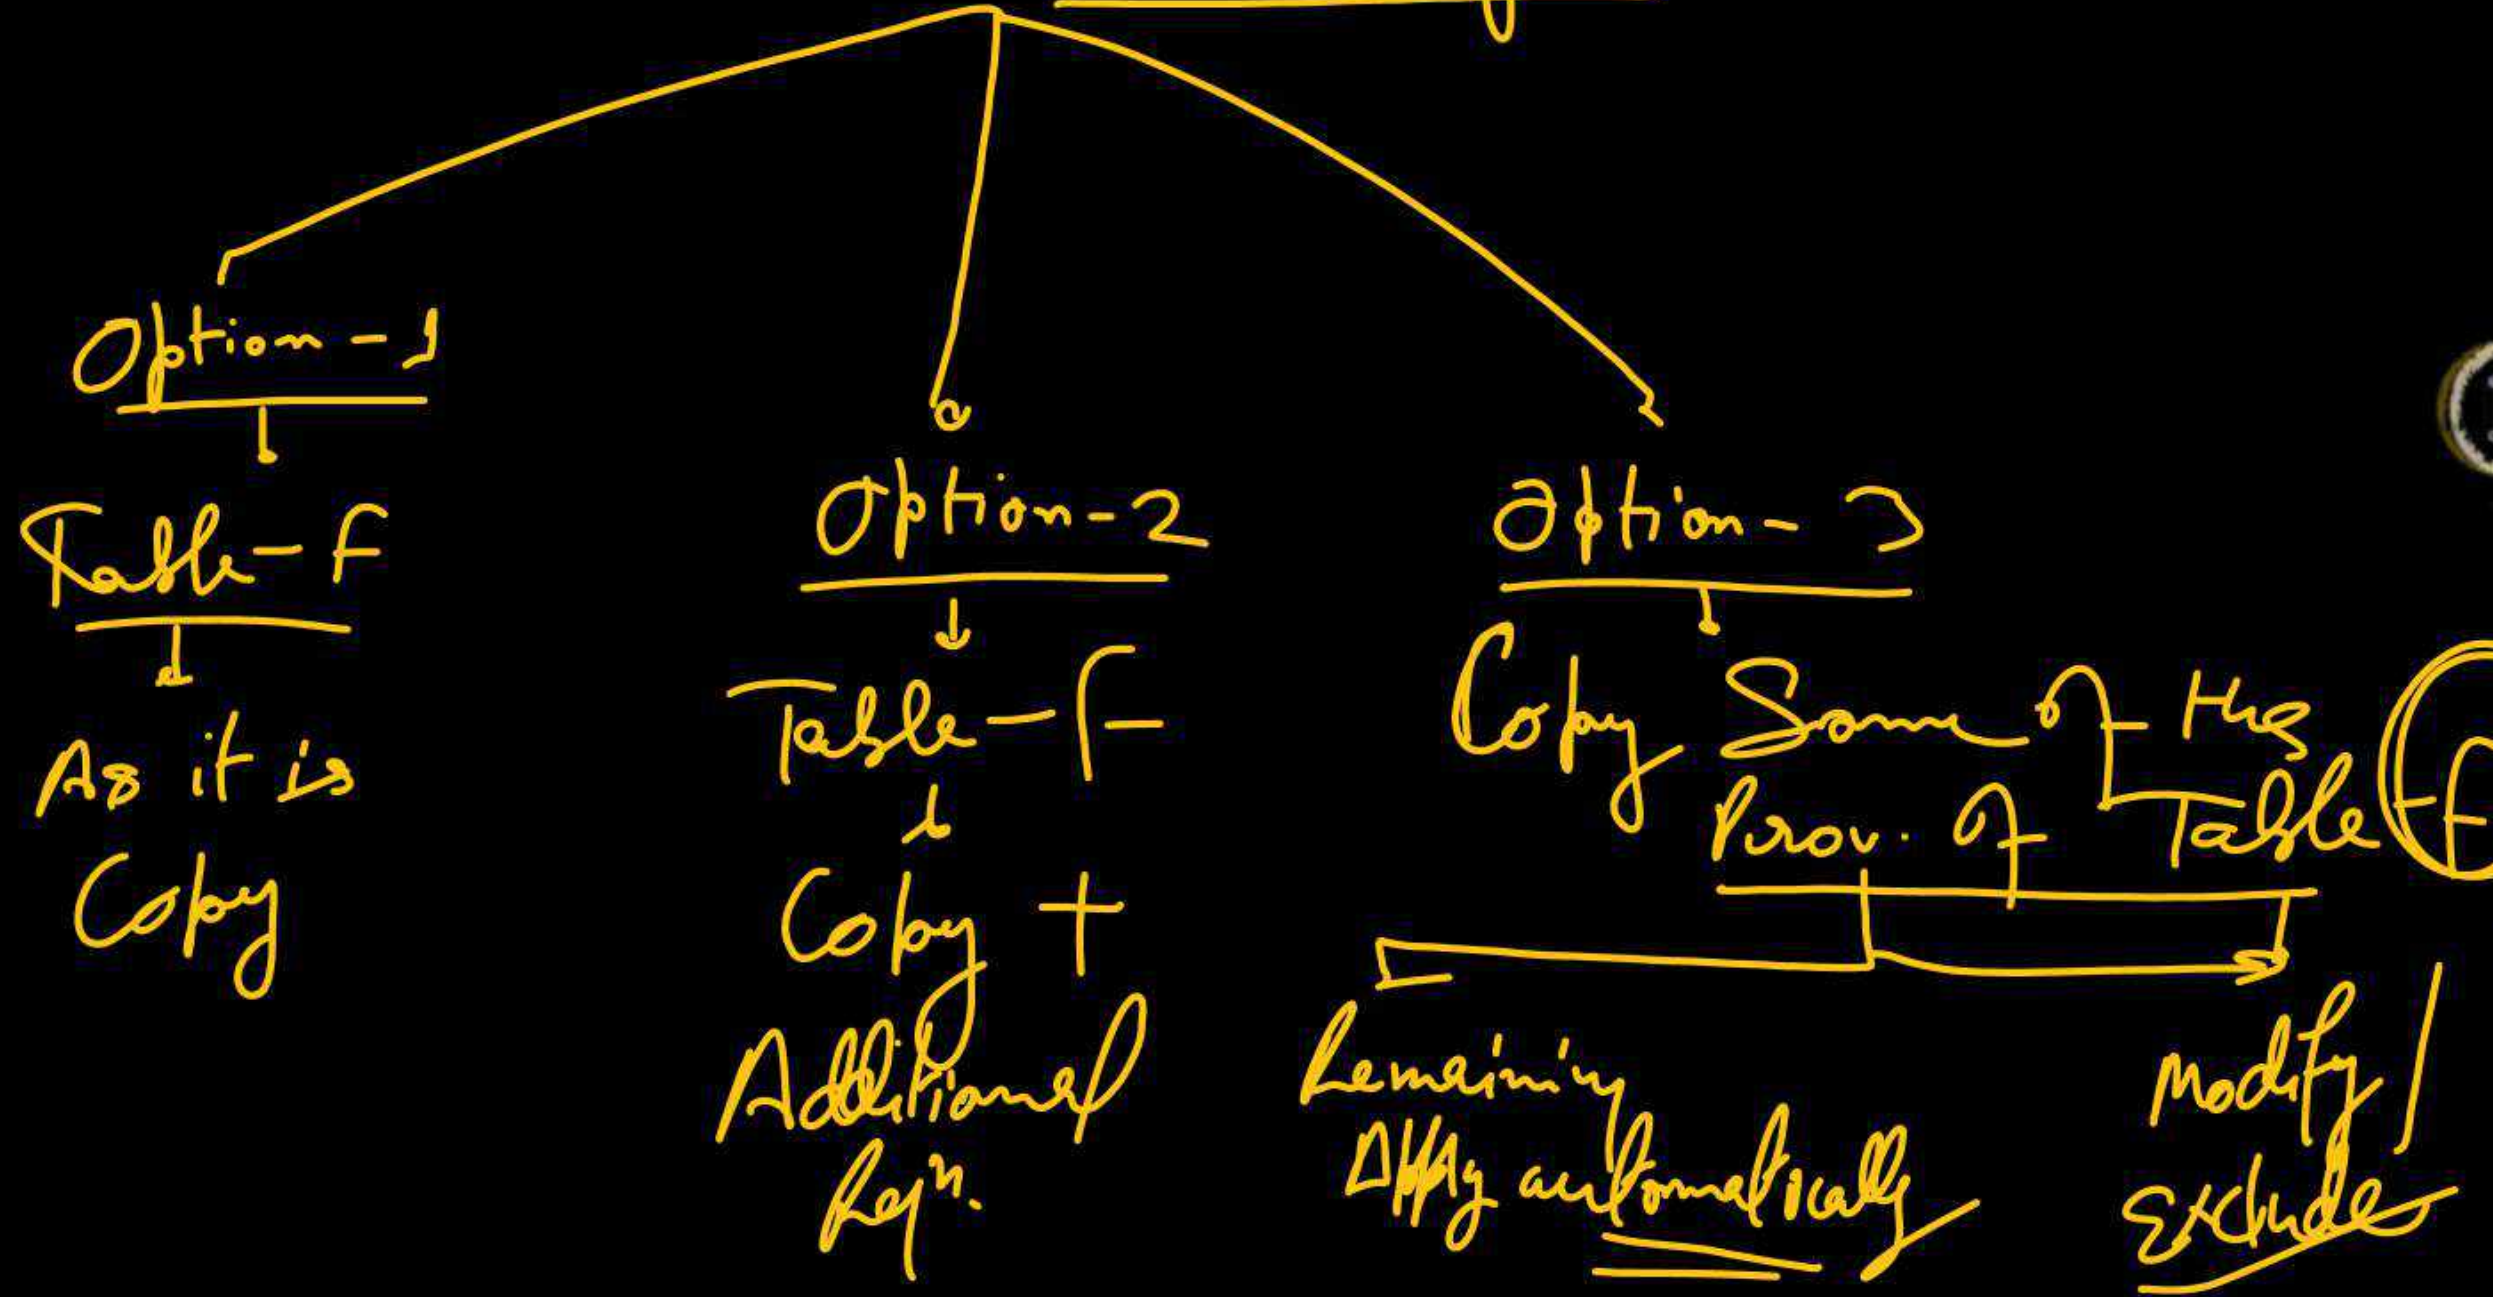 Option-1
Table-F
As it is
Copy
Option-2
Table-F
Copy +
Additional
Regn.
Option-3
Copy Some of the
Prov. of Table F
Remaining
Apply automatically
Modify/
Exclude